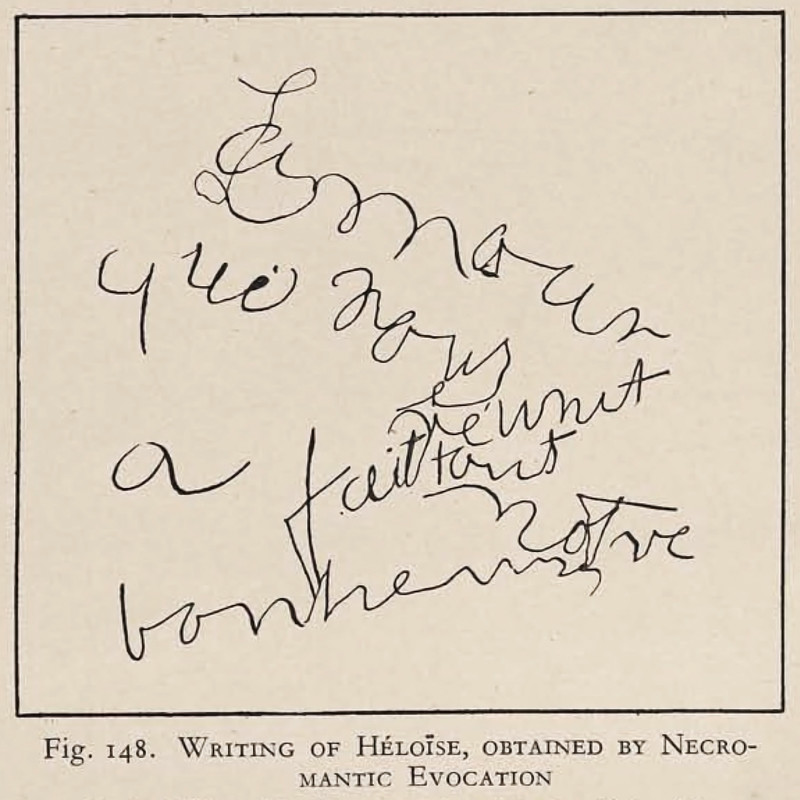 L'amour
qui nous
réunit
a fait tout
notre
bonheur
Fig. 148. WRITING OF HÉLOÏSE, OBTAINED BY NECRO-
MANTIC EVOCATION